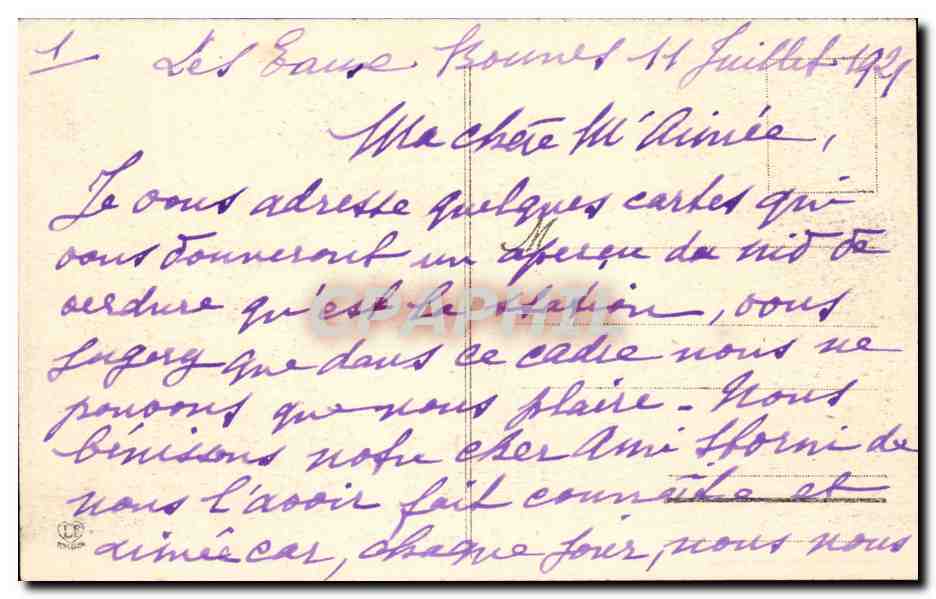 1 Les Eaux Bonnes 11 Juillet 1921
Ma chère M' Aimée,
Je vous adresse quelques cartes qui
vous donneront un aperçu du nid de
verdure qu'est la station, vous
jugerez que dans ce cadre nous ne
pouvons que nous plaire - Nous
bénissons notre cher Ami Storni de
nous l'avoir fait connaître et
aimée car, chaque jour, nous nous
CPAPHIL